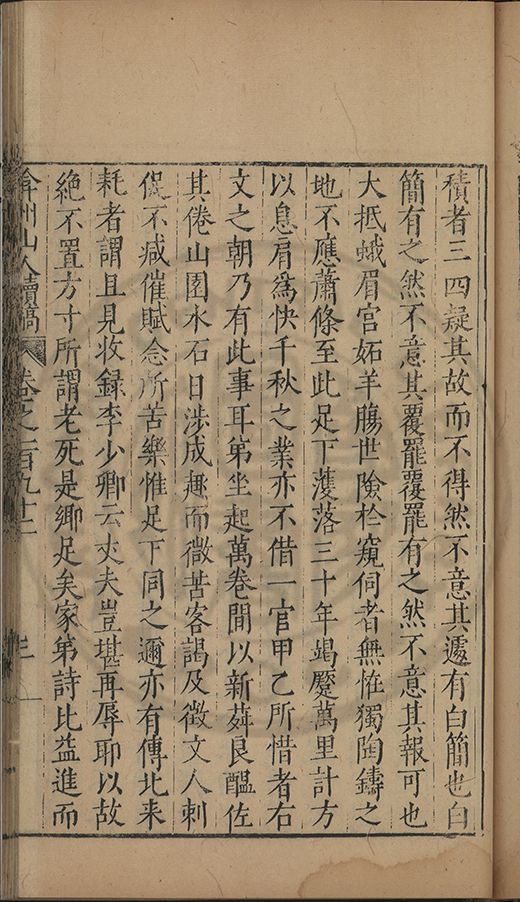 積者三四疑其故而不得然不意其遽有白簡也白
簡有之然不意其覆罷覆罷有之然不意其報可也
大抵蛾眉宮妬羊膓世險於窺伺者無恠獨陶鑄之
地不應蕭條至此足下濩落三十年竭蹷萬里計方
以息肩為快千秋之業亦不借一官甲乙所惜者右
文之朝乃有此事耳弟坐起萬卷間以新蕣良醞佐
其倦山園水石日涉成趣而微苦客謁及徵文人刺
促不减催賦念所苦樂惟足下同之邇亦有傳北来
耗者謂且見收録李少卿云丈夫豈堪再辱耶以故
絶不置方寸所謂老死是鄉足矣家弟詩比益進而
弇州山人續稿 卷之一百九十二 三